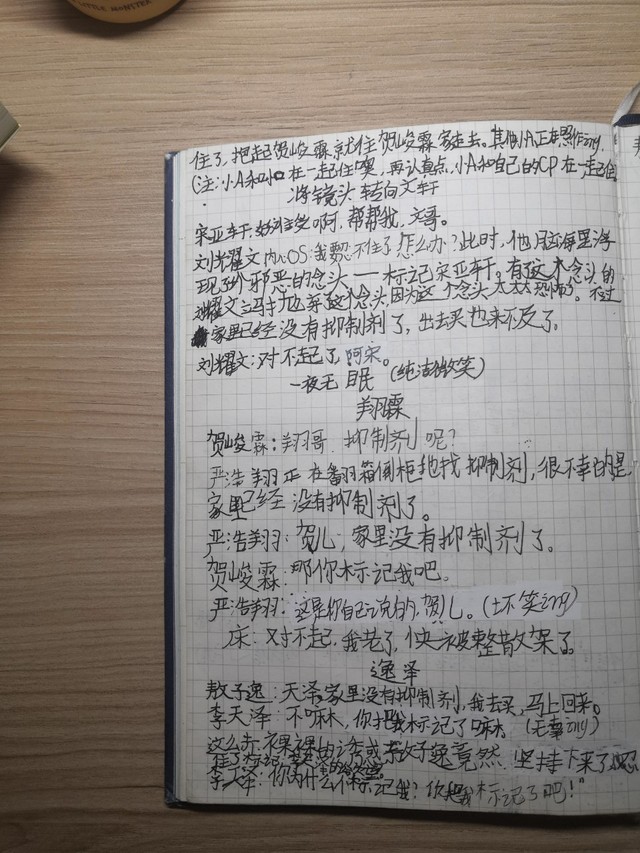 LITTLE MONSTER
住了,抱起贺峻霖就往贺峻霖家走去。其他小A正在照作ing
(注:小A和小O在一起住噢,再认真点,小A和自己的CP在一起住
将镜头转向文轩
宋亚轩:好难受啊,帮帮我,文哥。
刘耀文内心OS:我要忍不住了怎么办?此时,他脑海里浮
现了个邪恶的念头——标记宋亚轩。有这个念头的
刘耀文立马打消了这个念头,因为这个念头太太太恐怖了。不过
家里已经没有抑制剂了,出去买也来不及了。
刘耀文:对不起了,阿宋。
一夜无眠(纯洁微笑)
翔霖
贺峻霖:翔哥,抑制剂呢?
严浩翔正在翻箱倒柜地找抑制剂,很不幸的是,
家里已经没有抑制剂了。
严浩翔:贺儿,家里没有抑制剂了。
贺峻霖:那你标记我吧。
严浩翔:这是你自己说的,贺儿。(坏笑ing)
床:对不起,我老了,快被整散架了。
逸泽
敖子逸:天泽,家里没有抑制剂,我去买,马上回来。
李天泽:不嘛,你把我标记了嘛 (无辜ing)
这么赤裸裸的诱惑敖子逸竟然坚持下来了
李天泽:你为什么不标记我?你把我标记了吧!"